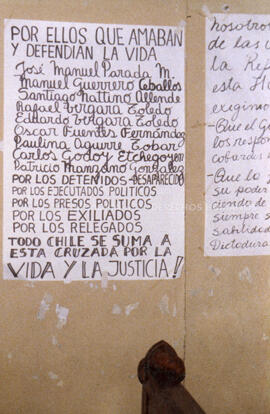 POR ELLOS QUE AMABAN
Y DEFENDIAN LA VIDA
José Manuel Parada M.
Manuel Guerrero Ceballos
Santiago Nattino Allende
Rafael Vergara Toledo
Eduardo Vergara Toledo
Oscar Fuentes Fernández
Paulina Aguirre Tobar
Carlos Godoy Etchegoyen
Patricio Manzano Gonzalez
POR LOS DETENIDOS DESAPARECIDO
POR LOS EJECUTADOS POLITICOS
POR LOS PRESOS POLITICOS
POR LOS EXILIADOS
POR LOS RELEGADOS
TODO CHILE SE SUMA A
ESTA CRUZADA POR LA
VIDA Y LA JUSTICIA!
nosotros
de las
la Re
esta
exigim
-Que el G
los respon
cobardes
-Que la
su poder
ciendo de
siempre s
sabilidad
Dictadura